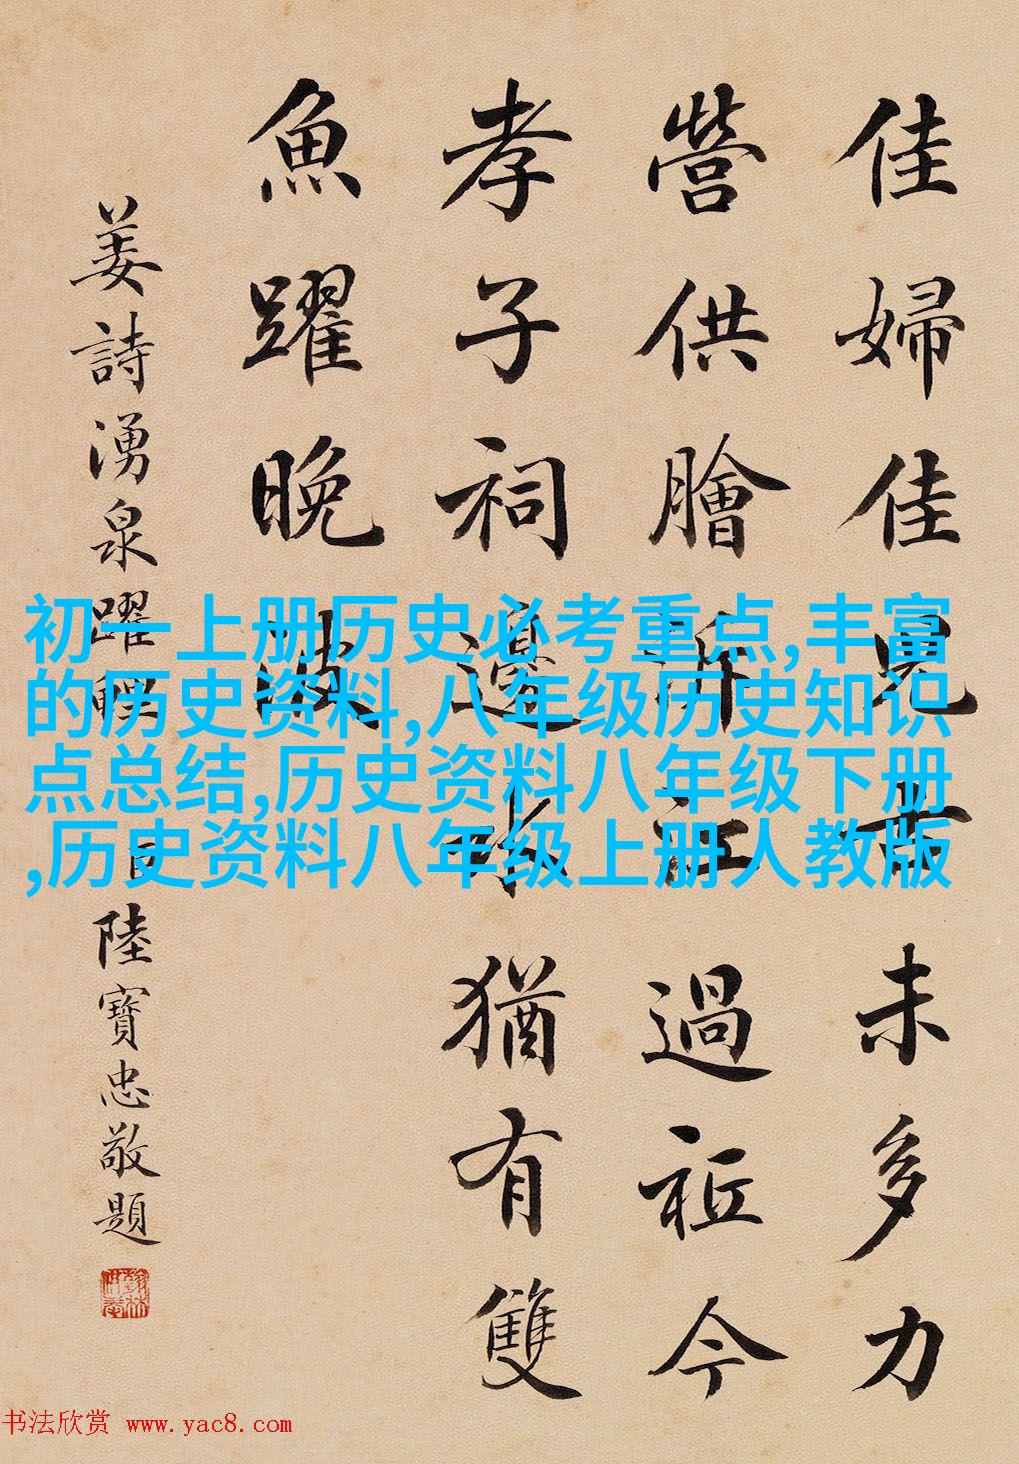 佳婦佳兒古未多力
營供膾泝江過今
孝子祠邊水猶有雙
魚躍晚波
姜詩湧泉躍鯉
陸寶忠敬題
初一上册历史必考重点,丰富
的历史资料,八年级历史知识
点总结,历史资料八年级下册
,历史资料八年级上册人教版
书法欣赏 www.yac8.com